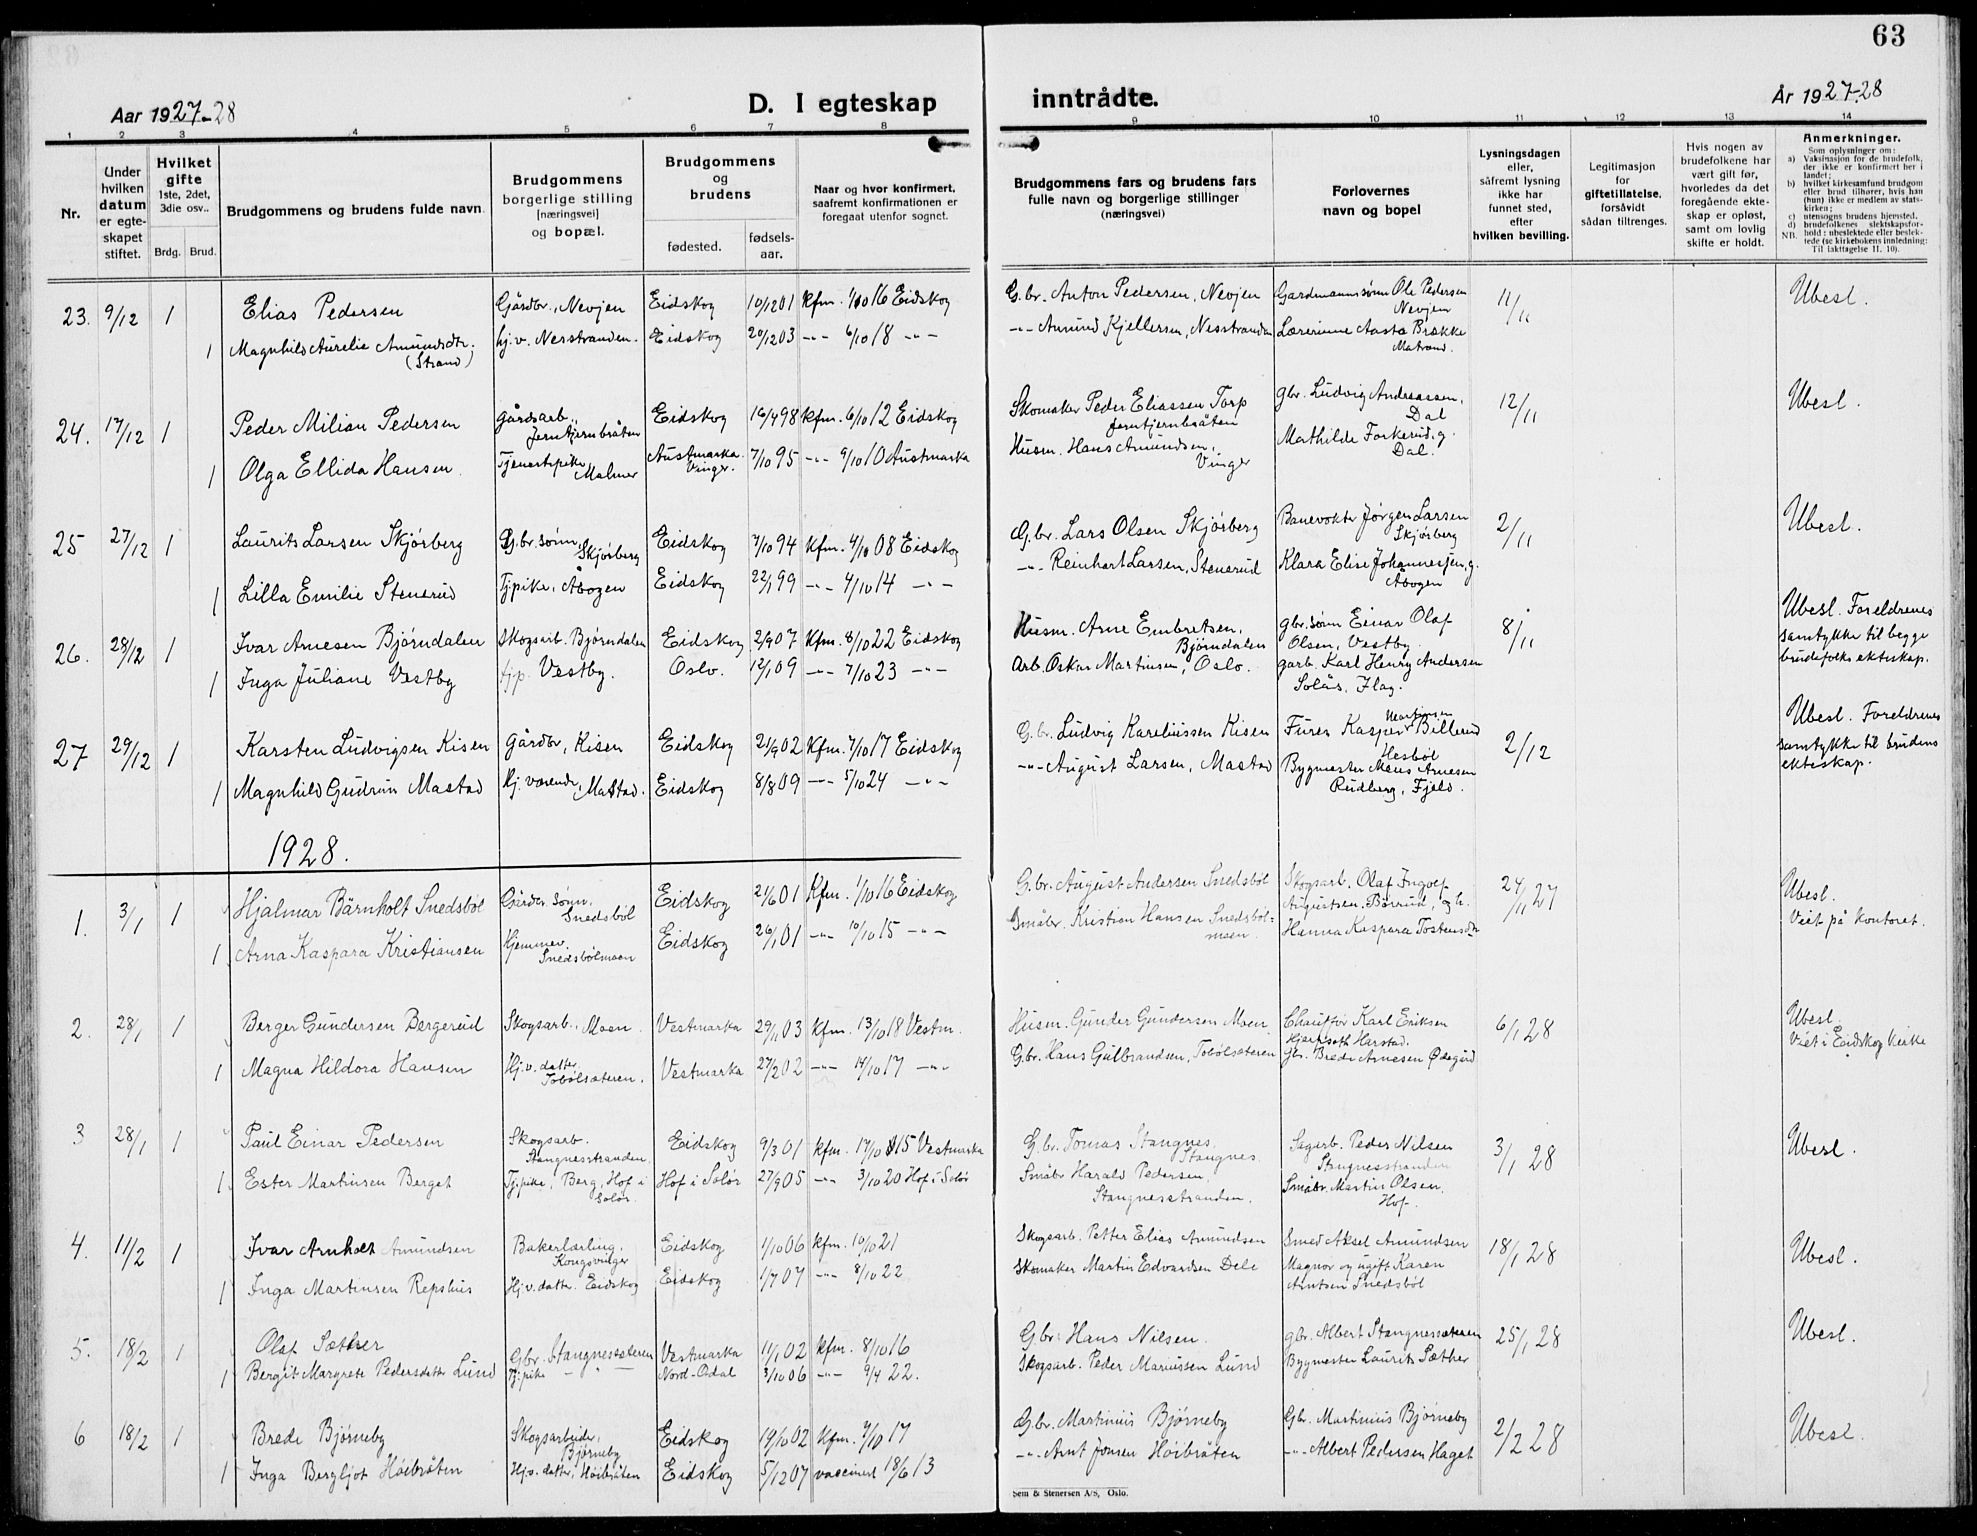 63
Aar 1927-28
D. I egteskap
inntrådte.
År 1927-28
1 2 3 4 5 6 7 8 9 10 11 12 13 14
Nr.
Under hvilken datum er egteskapet stiftet.
Hvilket gifte
1ste, 2det, 3die osv..
Brdg. Brud.
Brudgommens og brudens fulde navn
Brudgommens borgerlige stilling [næringsvei] og bopæl.
Brudgommens og brudens
fødested.
fødsels-aar.
Naar og hvor konfirmert, saafremt konfirmationen er foregaat utenfor sognet.
Brudgommens fars og brudens fars fulle navn og borgerlige stillinger (næringsvei)
Forlovernes navn og bopel
Lysningsdagen eller, såfremt lysning ikke har funnet sted, efter hvilken bevilling.
Legitimasjon for giftetillatelse, forsåvidt sådan tiltrenges.
Hvis nogen av brudefolkene har vært gift før, hvorledes da det foregående ekteskap er opløst, samt om lovlig skifte er holdt.
Anmerkninger.
Som oplysninger om:
a) Vaksinasjon for de brudefolk, der ikke er konfirmert her i landet;
b) hvilket kirkesamfund brudgom eller brud tilhører, hvis han (hun) ikke er medlem av statskirken;
c) utensogns brudens hjemsted.
d) brudefolkenes slektskapsforhold: ubeslektede eller beslektede (se kirkebokens innledning: NB. Til iakttagelse II. 10).
23. 9/12 1 Elias Pedersen Gårdbr., Nevjen Eidskog 10/12 01 kfm. 1/10 16 Eidskog G.br. Anton Pedersen, Nevjen Gardmannssønn Ole Pedersen Nevjen 11/11 Ubesl.
1 Magnhild Aurelie Amundsdtr. (Strand) hj.v. Nesstranden. Eidskog 20/12 03 -"- 6/10 18 -"- -"- Amund Kjellersen, Nesstranden Lærerinne Aasta Brække Matrand.
24. 17/12 1 Peder Milian Pedersen Gårdsarb., Jerntjernbråten Eidskog 16/4 98 kfm. 6/10 12 Eidskog Skomaker Peder Eliassen Torp Jerntjernbråten gbr. Ludvig Andreassen, Dal 12/11 Ubesl.
1 Olga Ellida Hansen. Tjenestepike, Malmer Austmarka Vinger. 7/10 95 -"- 9/10 10 Austmarka Husm. Hans Amundsen, Vinger Mathilde Forkerud, g. Dal.
25 27/12 1 Laurits Larsen Skjørberg G.br.sønn, Skjørberg Eidskog 7/10 94 kfm. 4/10 08 Eidskog G.br. Lars Olsen Skjørberg Banevokte Jørgen Larsen Skjørberg 2/11 Ubesl.
1 Lilla Emilie Stenerud Tj.pike, Åbogen Eidskog 22/1 99 -"- 4/10 14 -"- -"- Reinhart Larsen, Stenerud Klara Elise Johannessen, g. Åbogen
26. 28/12 1 Ivar Arnesen Bjørndalen Skogsarb. Bjørndalen Eidskog 2/9 07 kfm. 8/10 22 Eidskog Husm. Arne Embretsen, Bjørndalen gbr.sønn Einar Olaf Olsen, Vestby. 8/11 Ubesl. Foreldrenes samtykke til begge brudefolks ekteskap.
1 Inga Juliane Vestby tj.p. Vestby. Oslo. 12/1 09 -"- 7/10 23 -"- Arb. Oskar Martinsen, Oslo. garb. Karl Henry Andersen Solås, Flag.
27 29/12 1 Karsten Ludvigsen Kisen Gårdbr, Kisen Eidskog 21/9 02 kfm. 7/10 17 Eidskog G.br. Ludvig Kareliussen Kisen Furer Kasper Martinsen Billerud Hesbøl 2/12 Ubesl. Foreldrenes samtykke til brudens ekteskap.
1 Magnhild Gudrun Mastad Hj. værende, Mastad. Eidskog 8/8 09 -"- 5/10 24 -"- -"- August Larsen, Mastad Bygmester Mens Arnesen Rudberg, Fjeld.
1928.
1. 3/1 1 Hjalmar Bärnholt Snedsbøl Gårdbr. sønn, Snedsbøl Eidskog 21/6 01 Kfm. 1/10 16 Eidskog G.br. August Andersen Snedsbøl Skogsarb. Olaf Ingolf Augustsen, Børrud, og h. 24/11 27 Ubesl. Viet på kontoret.
1 Arna Kaspara Kristiansen Hjemmev. Snedsbølmoen Eidskog 26/1 01 -"- 10/10 15 -"- Småbr. Kristian Hansen Snedsbøl-moen Hanna Kaspara Tostensdtr
2. 28/1 1 Berger Gundersen Bergerud Skogsarb., Moen Vestmarka 29/11 03 kfm. 13/10 18 Vestm. Husm. Gunder Gundersen Moen Chauffør Karl Eriksen Hjerpseth Harstad. 6/1 28 Ubesl. Viet i Eidskog kirke
1 Magna Hildora Hansen Hj.v. datter, Tobølsæteren. Vestmarka 27/2 02 -"- 14/10 17 -"- G.br. Hans Gulbrandsen, Tobølsæteren Gbr. Brede Arnesen Ødegård
3 28/1 1 Paul Einar Pedersen Skogsarb. Stangnesstranden. Eidskog 9/3 01 kfm. 17/10 15 Vestmarka G.br. Tomas Stangnes, Stangnes Sagarb. Peder Nilsen Stangnesstranden 3/1 28 Ubesl.
1 Ester Martinsen Berget Tj.pike, Berg, Hof i Solør. Hof i Solør 27/9 05 -"- 3/10 20 Hof i Solør Småbr. Harald Pedersen, Stangnesstranden. Småbr. Martin Olsen, Hof.
4. 11/2 1 Ivar Arnholt Amundsen Bakerlærling, Kongsvinger Eidskog 1/10 06 kfm. 10/10 21 Skogsarb. Petter Elias Amundsen Smed Aksel Amundsen 18/1 28 Ubesl.
1 Inga Martinsen Repshus Hj.v. datter. Eidskog Eidskog 1/7 07 -"- 8/10 22 Skomaker Martin Edvardsen Dele Magnor og ugift Karen Arntsen Snedsbøl
5. 18/2 1 Olaf Sæther Gbr. Stangnessæteren Vestmarka 11/1 02 kfm. 8/10 16 Gbr. Hans Nilsen. gbr. Albert Stangnessæteren 25/1 28 Ubesl.
1 Bergit Margrete Pedersdatter Lund Tj.pike -"- Nord-Odal 3/10 06 -"- 9/4 22. Skogsarb. Peder Mariussen Lund Bygmester Laurits Sæther
6 18/2 1 Brede Bjørneby Skogsarbeider, Bjørneby Eidskog 19/10 02 kfm. 7/10 17 Gbr. Martinius Bjørneby Gbr. Martinius Bjørneby 2/2 28 Ubesl.
1 Inga Bergljot Høibråten Hj.v. datter, Høibråten Eidskog 5/12 07 vaccinert 18/6 13 -"- Arnt Jonsen Høibråten -"- Albert Pedersen Haget
Sem & Stenersen A/S, Oslo.